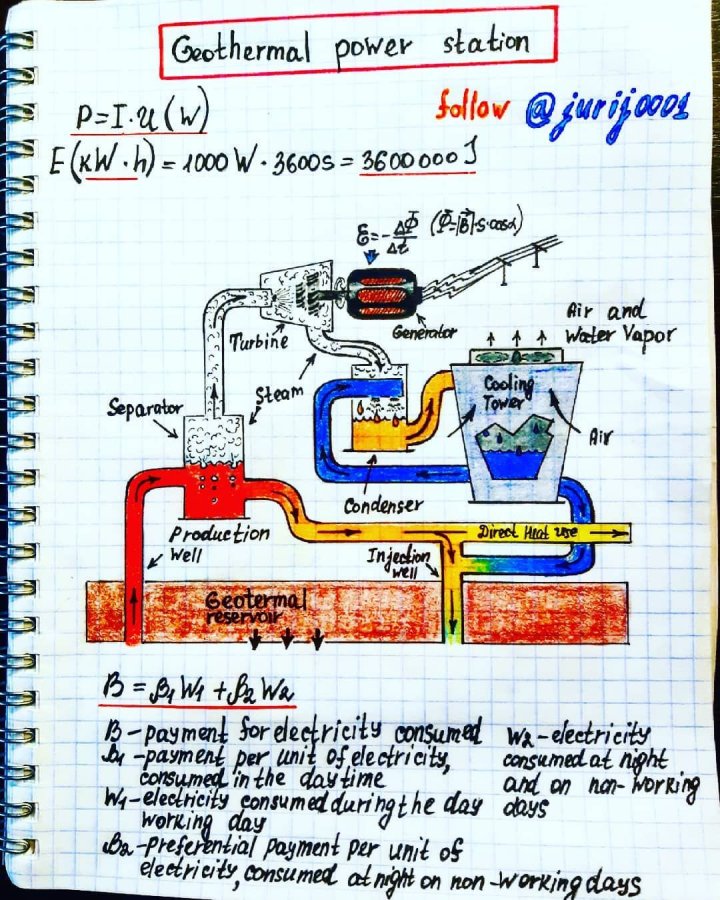 Geothermal power station
P=I·U(W)
follow @jurij0001
E(kW·h)=1000W·3600s=3600000J
Ɛ=-ΔΦ/Δt (Φ=|B|·S·cosα)
Air and
Water Vapor
Turbine
Generator
Steam
Cooling
Tower
Separator
Air
Condenser
Production
well
Direct Heat Use
Injection
well
Geotermal
reservoir
B=β1W1+β2W2
B-payment for electricity consumed
β1-payment per unit of electricity,
consumed in the daytime
W1-electricity consumed during the day
working day
β2-preferential payment per unit of
electricity, consumed at night on non-working days
W2-electricity
consumed at night
and on non-working
days